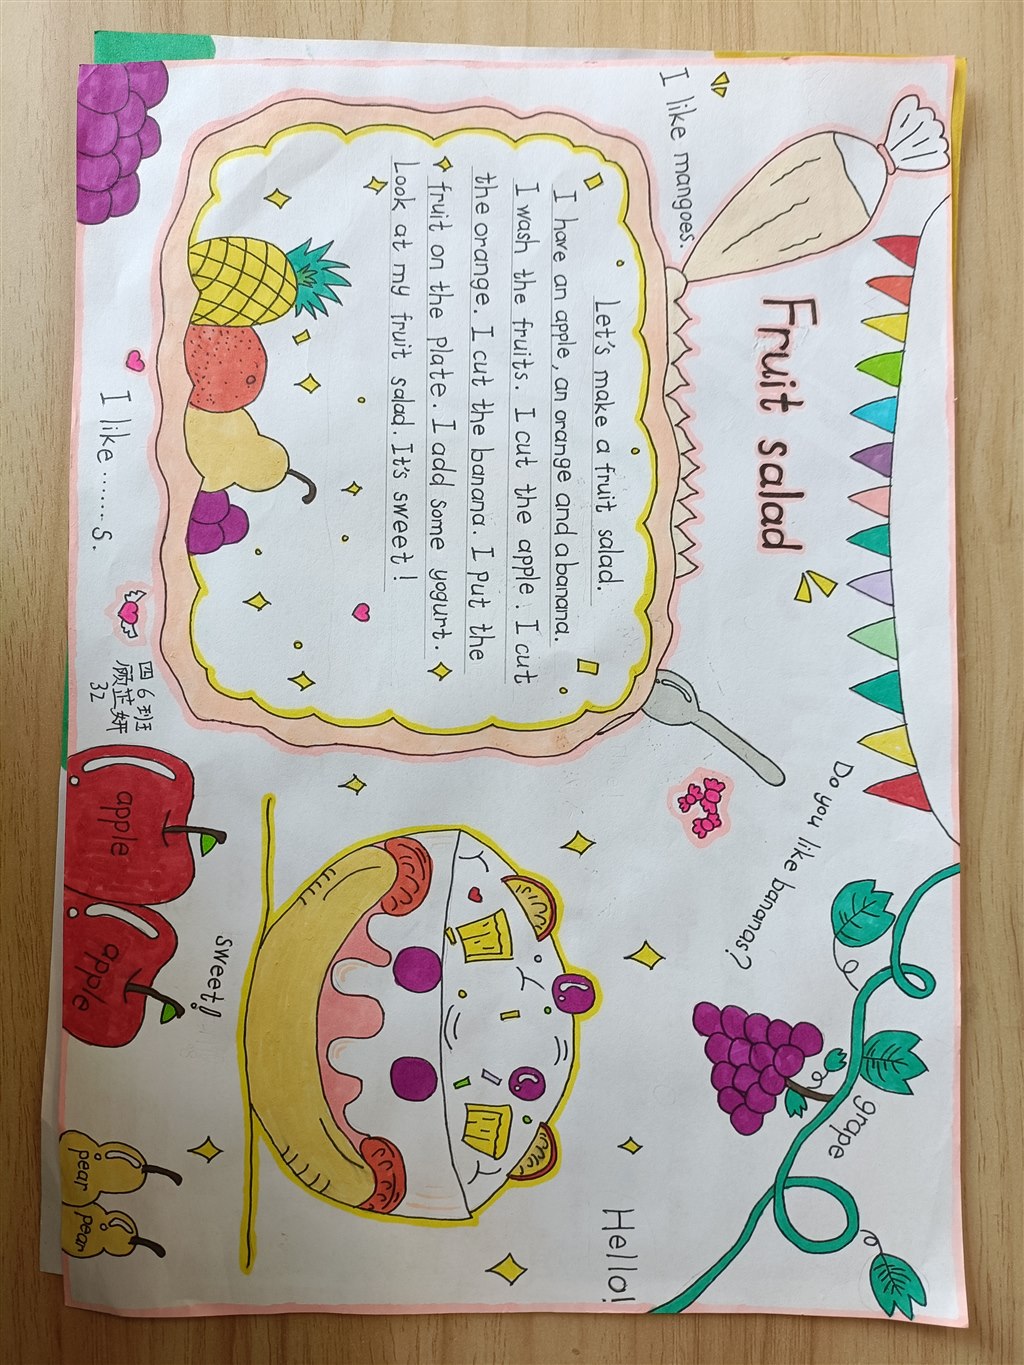 Fruit salad
I like mangoes.
Let's make a fruit salad.
I have an apple, an orange and a banana.
I wash the fruits. I cut the apple. I cut
the orange. I cut the banana. I put the
fruit on the plate. I add some yogurt.
Look at my fruit salad. It's sweet!
I like ……s.
四6班
顾芷妍
32
Do you like bananas?
grape
Hello!
sweet!
apple
apple
pear
pear